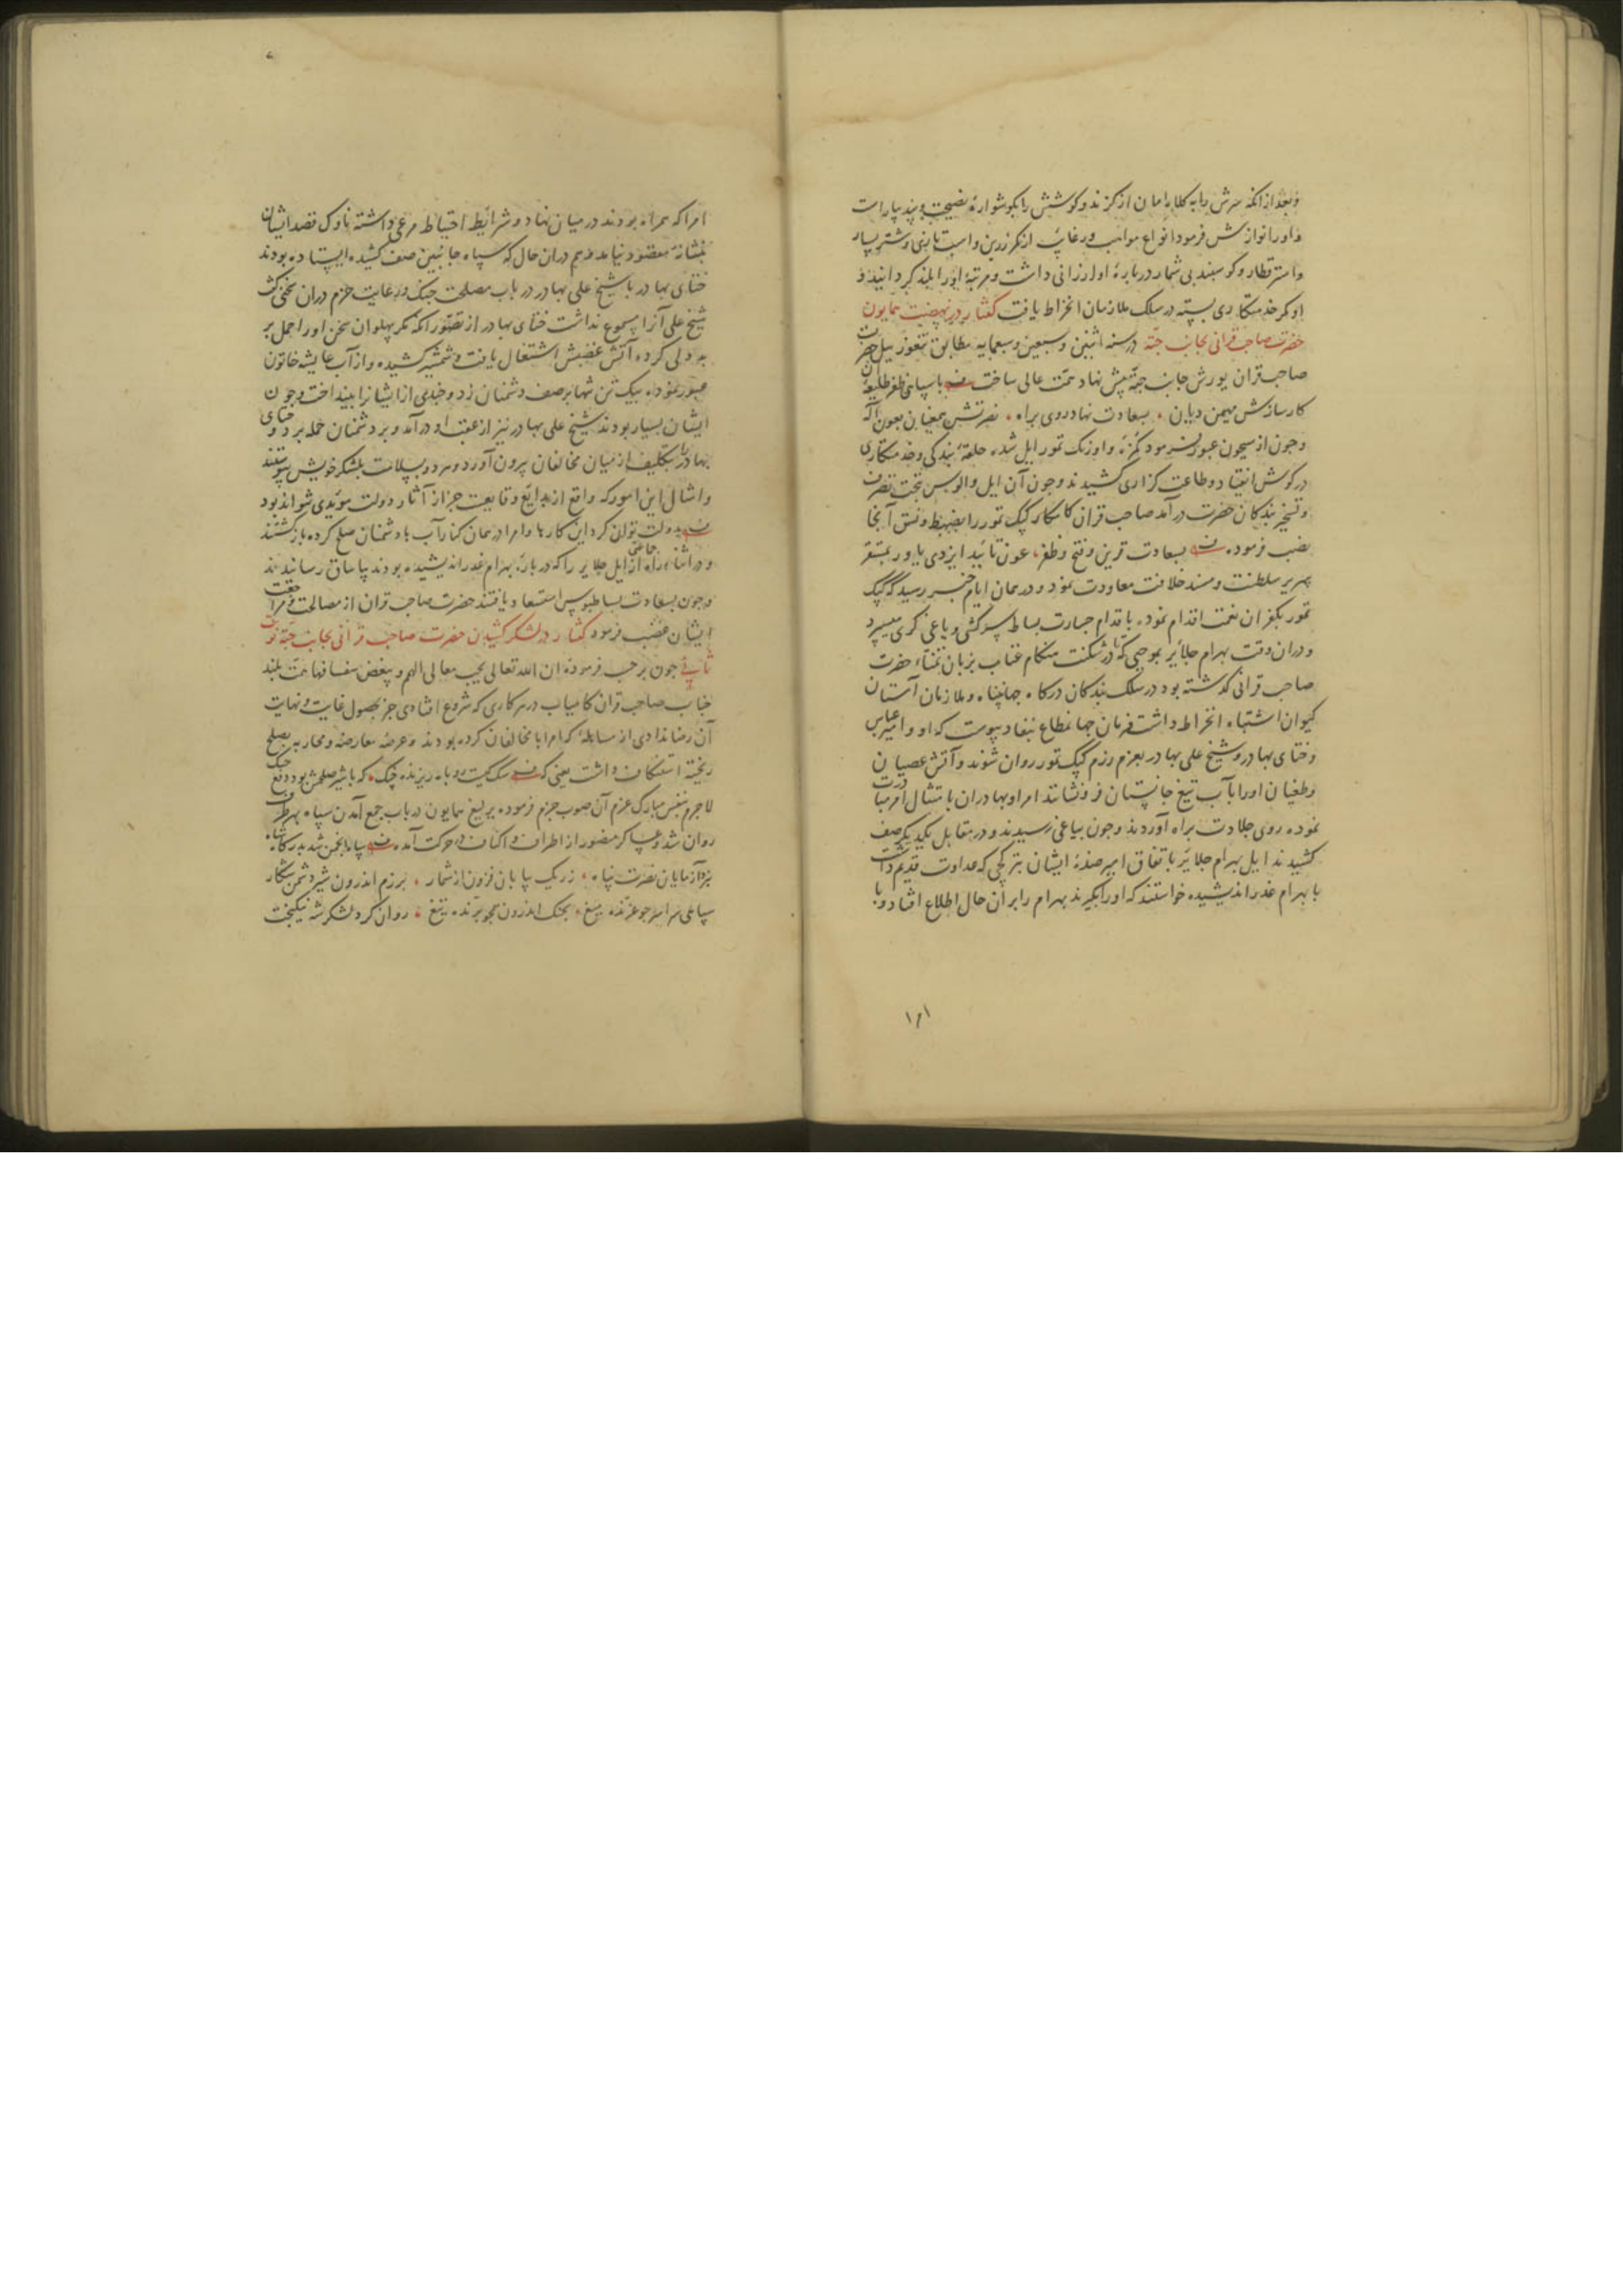 و بعد از انکه سرش را به کلاه امان از کزند و کوشش را بکوشوارهٔ نصیحت و پند بیاراست
و اورا نوازش فرمود انواع مواهب و رغایب از کمر زرین و اسب تازی و شتر بسیار
و استر قطار و کوسفند بی شمار دربارهٔ او ارزانی داشت و مرتبهٔ اورا بلند کردانید و
او کمر خدمتکاری بسته در سلک ملازمان انخراط یافت کفتار در نهضت همایون
حضرت صاحب قرانی بجانب جته در سنه اثنین و سبعین و سبعمایه مطابق تنغوز ییل حضرت
صاحب قران یورش جانب جته پیش نهاد همت عالی ساخت با سپاهی ظفر طلیعهٔ آن
کارسازش مهیمن دیان بسعادت نهاد روی براه نصرتش همعنان بعون اله
و چون از سیحون عبور فرمود کمزه و اورنک تمور ایل شده حلقهٔ بندکی و خدمتکاری
در کوش انقیاد و طاعت کزاری کشیدند و چون آن ایل و الوس تحت تصرف
و تسخیر بندکان حضرت درآمد صاحب قران کامکار کپک تمور را بضبط و نسق آنجا
نصب فرموده بسعادت قرین و فتح و ظفر عون تائید ایزدی یاور بمستقر
سریر سلطنت و مسند خلافت معاودت نمود و در همان ایام خبر رسید که کپک
تمور بکفران نعمت اقدام نموده باقدام جسارت بساط سرکشی و یاغی کری میسپرد
و دران وقت بهرام جلائر بموجبی که در شکنت هنکام عتاب بزبان تمناء حضرت
صاحب قرانی کذشته بود در سلک بندکان درکاه جهانپناه و ملازمان آستان
کیوان اشتباه انخراط داشت فرمان جهانمطاع بنفاد پیوست که او و امیر عباس
و ختای بهادر و شیخ علی بهادر بعزم رزم کپک تمور روان شوند و آتش عصیان
و طغیان اورا بآب تیغ جانستان فرونشانند امرا و بهادران بامتثال امر مبادرت
نموده روی جلادت براه آوردند و چون بیاغی رسیدند و در مقابل یکدیکر صف
کشیدند ایل بهرام جلائر باتفاق امیر صدهٔ ایشان بترکچی که عداوت قدیم داشت
با بهرام غدر اندیشیده خواستند که اورا بکیرند بهرام را بران حال اطلاع افتاد و با
۱۸۱
امرا که همراه بودند در میان نهاد و شرایط احتیاط مرعی داشته ناوک قصد ایشان
بنشانهٔ مقصود نیامد و هم دران حال که سپاه جانبین صف کشیده ایستاده بودند
ختای بهادر با شیخ علی بهادر در باب مصلحت جنک و رعایت حزم دران سخنی کفت
شیخ علی آنرا مسموع نداشت ختای بهادر از تصور آنکه مکر پهلوان سخن اورا حمل بر
بد دلی کرده آتش غضبش اشتعال یافت و شمشیر کشیده و از آب عایشه خاتون
عبور نموده بیک تن تنها بر صف دشمنان زد و چندی از ایشانرا بینداخت و چون
ایشان بسیار بودند شیخ علی بهادر نیز از عقب او درآمد و بر دشمنان حمله برد و ختای
بهادر را بتکلیف از میان مخالفان بیرون آورد و هر دو بسلامت بلشکر خویش پیوستند
و امثال این امور که واقع از بدایع وقایعست جز از آثار دولت مؤیدی نتواند بود
بدولت توان کرد این کارها و امرا در همان کنار آب با دشمنان صلح کرده بازکشتند
و در اثناء راه جماعتی از ایل جلایر را که دربارهٔ بهرام غدر اندیشیده بودند بیاساق رسانیدند
و چون بسعادت بساطبوس استسعاد یافتند حضرت صاحب قران از مصالحت و مراجعت
ایشان غضب فرمود کفتار در لشکر کشیدن حضرت صاحب قرانی بجانب جته نوبت
ثانی چون بر حسب فرمودهٔ ان الله تعالی یحب معالی الهمم و یبغض سفسافها همت بلند
جناب صاحب قران کامیاب در هر کاری که شروع افتادی جز بحصول غایت و نهایت
آن رضا ندادی از مساهلهٔ که امرا با مخالفان کرده بودند و عرضه معارضه و محاربه بصلح
ریخته استنکاف داشت یعنی که سک کیست روباه ریزنده چنک که با شیر صلحش بود دفع جنک
لاجرم بنفس مبارک عزم آن صوب جزم فرموده یرلیغ همایون در باب جمع آمدن سپاه بهر طرف
روان شد و عساکر منصور از اطراف و اکناف در حرکت آمده سپاه انجمن شد بدرکاه شاه
نبرد آزمایان نصرت پناه ز ریک بیابان فزون از شمار برزم اندرون شیر دشمن شکار
سپاهی سراسر چو غرنده میغ بجنک اندرون همچو برنده تیغ روان کرد لشکر شه نیکبخت